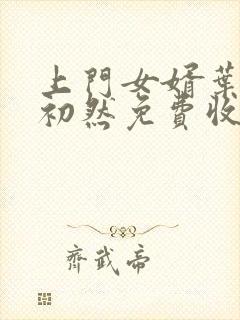 上門女婿葉
初然免費收
齊武帝